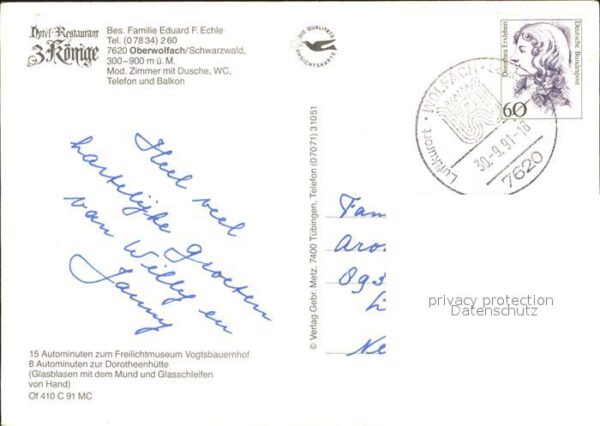 Hotel-Restaurant
3 Könige
Bes. Familie Eduard F. Echle
Tel. (0 78 34) 2 60
7620 Oberwolfach/Schwarzwald,
300–900 m ü. M.
Mod. Zimmer mit Dusche, WC,
Telefon und Balkon
DIE QUALITÄTS
ANSICHTSKARTE
Dorothea Erxleben
Deutsche Bundespost
60
WOLFACH
Luftkurort
30.-9.91-16
7620
Heel veel
hartelijke groeten
van Willy en
Janny
© Verlag Gebr. Metz, 7400 Tübingen, Telefon (07071) 31051
Fam
Aro
893
Ne
privacy protection
Datenschutz
15 Autominuten zum Freilichtmuseum Vogtsbauernhof
8 Autominuten zur Dorotheenhütte
(Glasblasen mit dem Mund und Glasschleifen
von Hand)
Of 410 C 91 MC